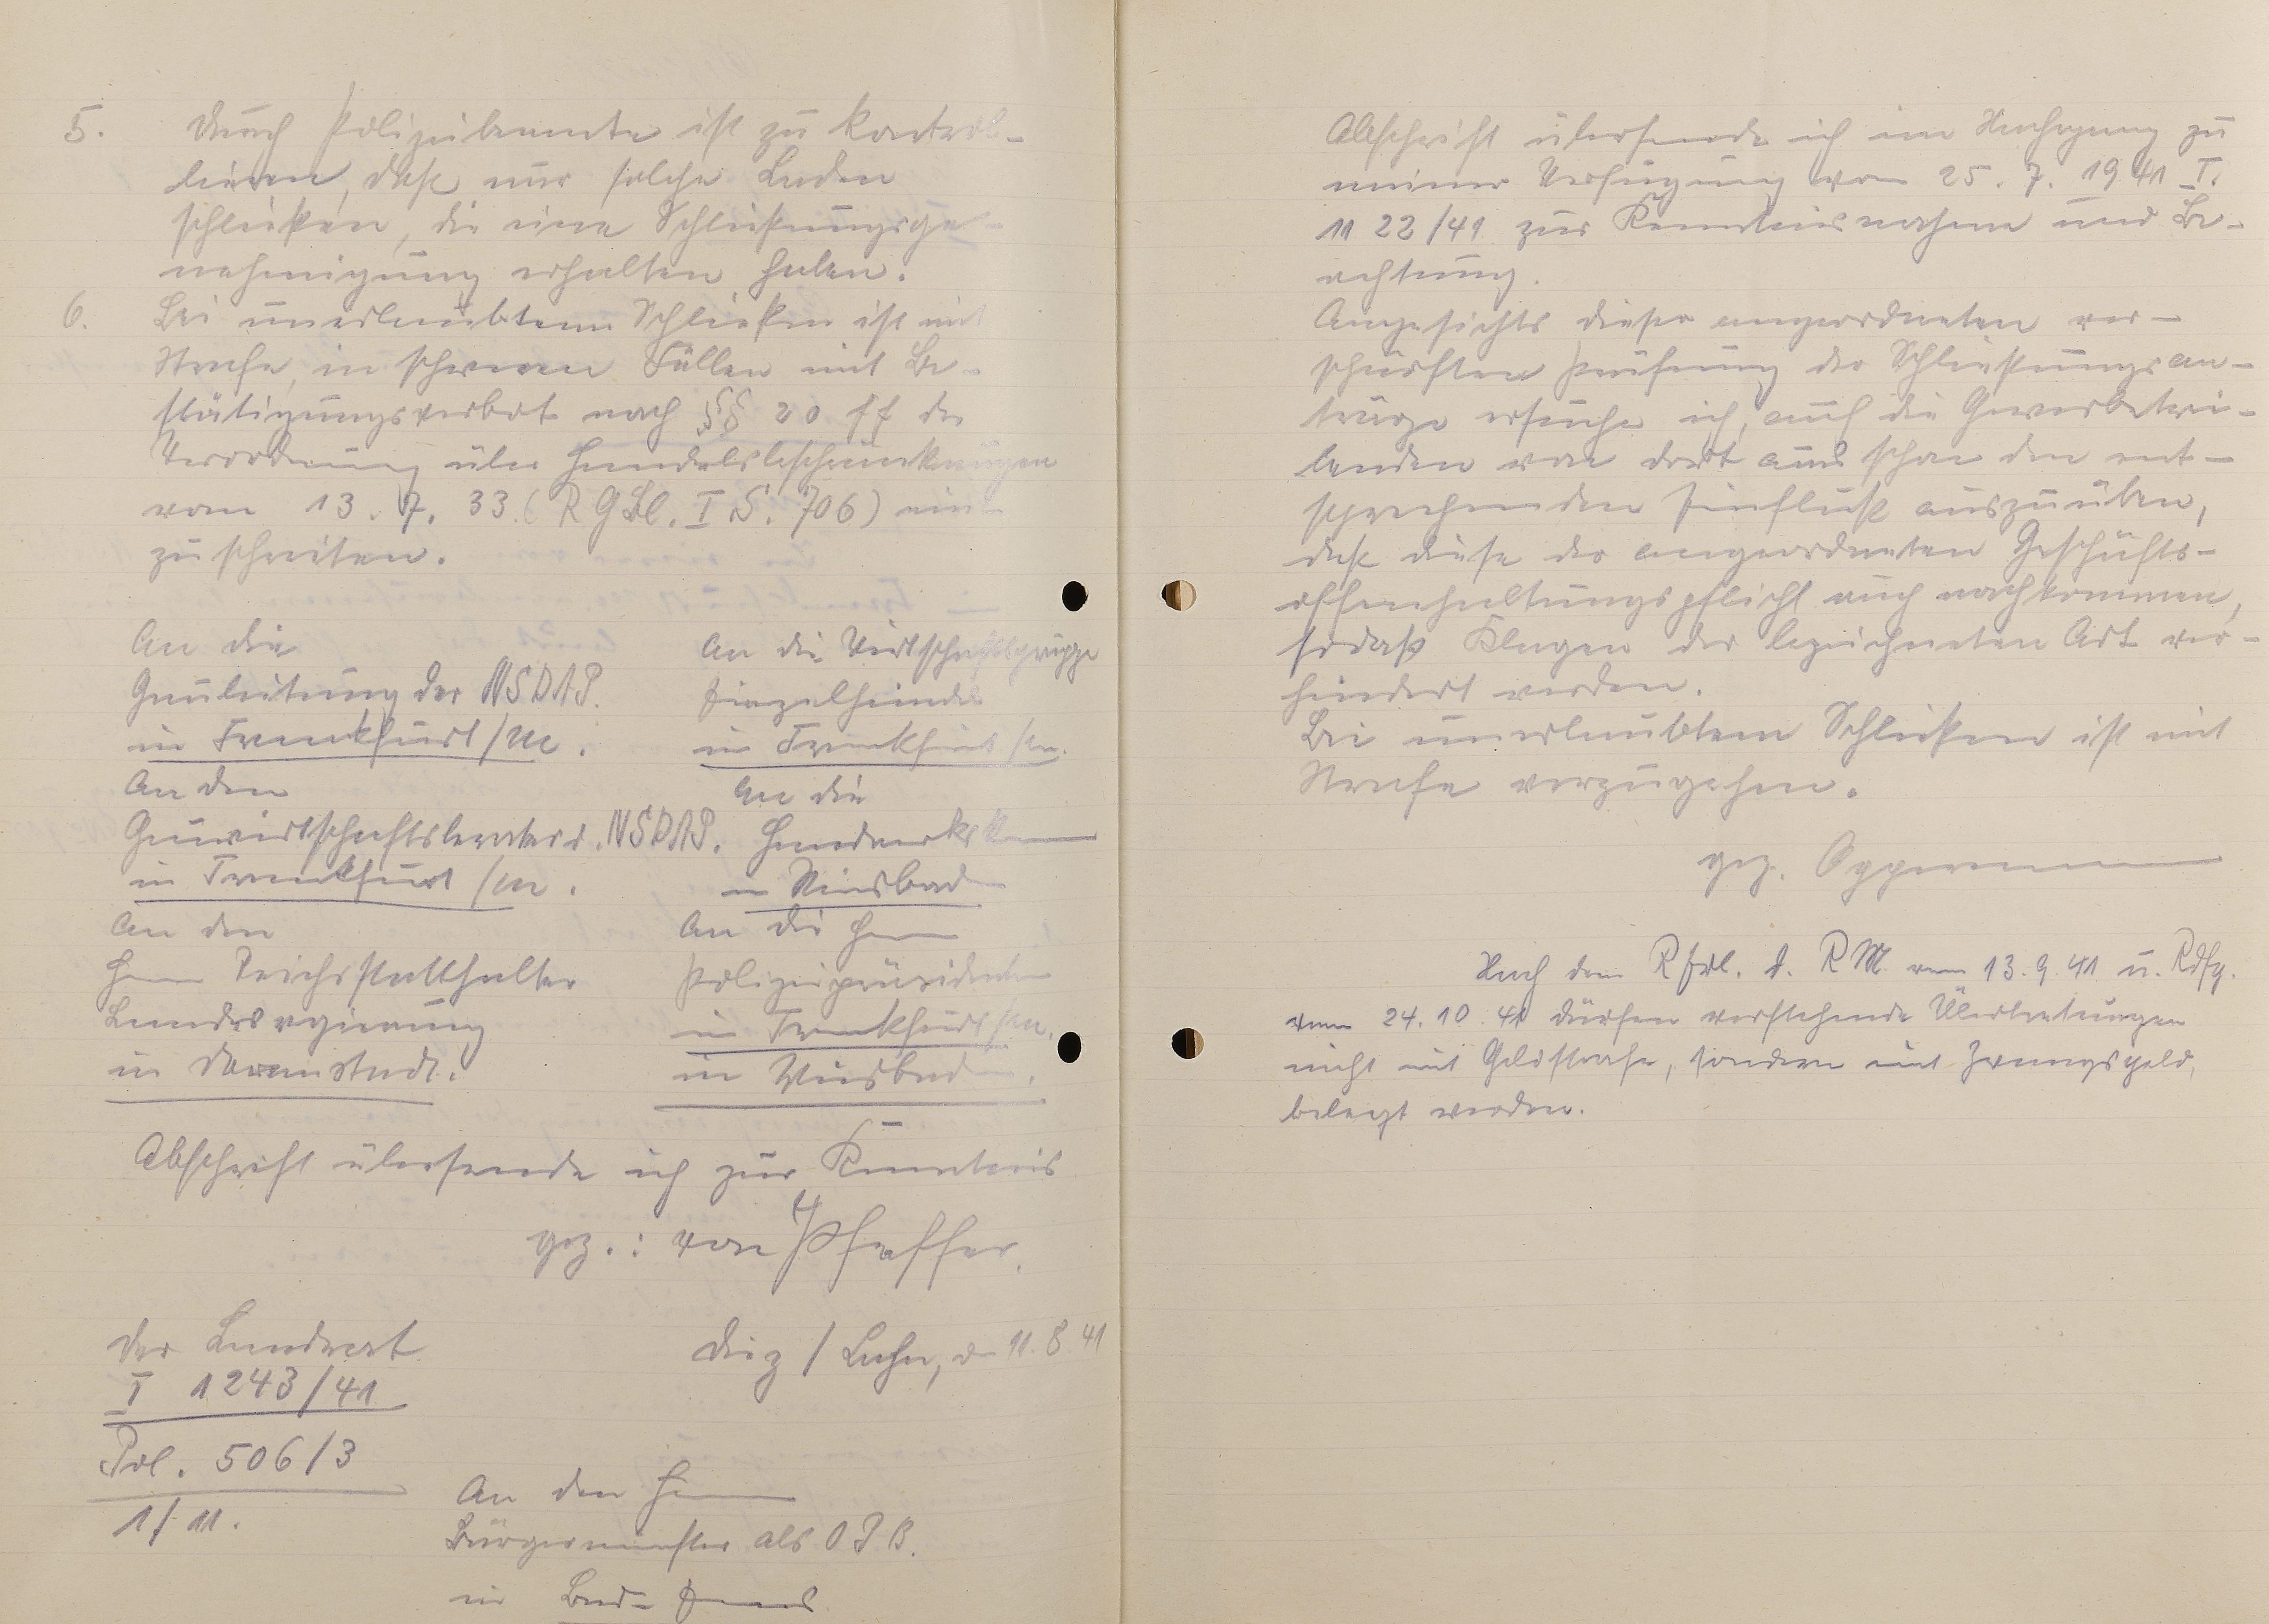 5. Durch Polizeibeamte ist zu kontrol-
lieren, daß nur solche Läden
schließen, die eine Schließungsge-
nehmigung erhalten haben.
6. Bei unerlaubtem Schließen ist mit
Strafe, in schweren Fällen mit Be-
tätigungsverbot nach §§ 20 ff der
Verordnung über Handelsbeschränkungen
vom 13. 7. 33. (RGBl. I S. 706) ein-
zuschreiten.
An die
Gauleitung der NSDAP.
in Frankfurt/M.
An den
Gauwirtschaftsberater d. NSDAP.
in Frankfurt/M.
An den
Herrn Reichsstatthalter
Landesregierung
in Darmstadt.
An die Wirtschaftsgruppe
Einzelhandel
in Frankfurt/M.
An die
Handwerkskammer
in Wiesbaden
An die Herren
Polizeipräsidenten
in Frankfurt/M.
in Wiesbaden.
Abschrift übersende ich zur Kenntnis
gez.: von Pfeffer.
Der Landrat
I 1243/41
Diez / Lahn, den 11. 8. 41
Pol. 506/3
1/11.
An den Herrn
Bürgermeister als O.P.B.
in Bad-Ems
Abschrift übersende ich im Nachgang zu
meiner Verfügung vom 25. 7. 1941 I.
1122/41 zur Kenntnisnahme und Be-
achtung.
Angesichts dieser angeordneten ver-
schärften Prüfung der Schließungsan-
träge ersuche ich, auf die Gewerbetrei-
benden von dort aus schon den ent-
sprechenden Einfluß auszuüben,
daß diese der angeordneten Geschäfts-
offenhaltungspflicht auch nachkommen,
sodaß Klagen der bezeichneten Art ver-
hindert werden.
Bei unerlaubtem Schließen ist mit
Strafe vorzugehen.
gez. Oppermann
Nach dem RErl. d. RM. vom 13. 9. 41 u. Rdfg.
vom 24. 10. 41 dürfen vorstehende Übertretungen
nicht mit Geldstrafe, sondern mit Zwangsgeld,
belegt werden.